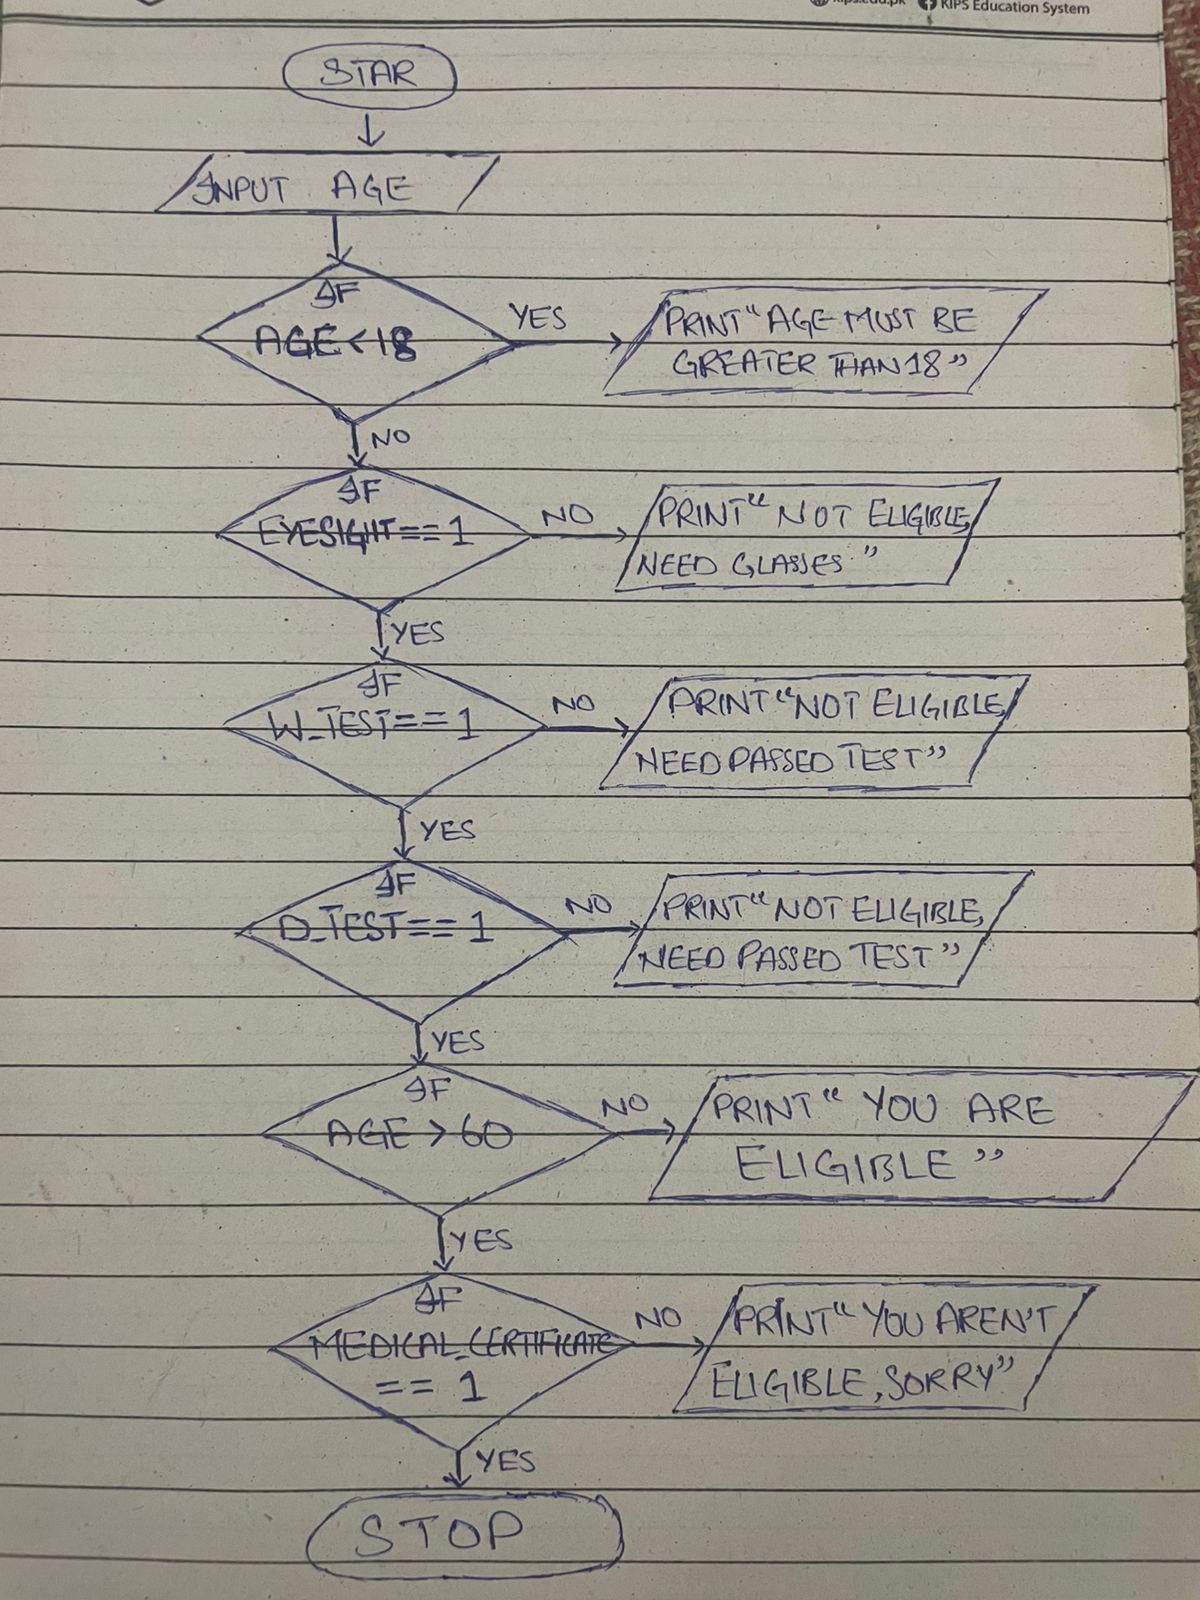 kips.edu.pk KIPS Education System
STAR
INPUT AGE
IF
AGE < 18
YES
PRINT "AGE MUST BE
GREATER THAN 18"
NO
IF
EYESIGHT == 1
NO
PRINT "NOT ELIGIBLE,
NEED GLASSES."
YES
IF
W_TEST == 1
NO
PRINT "NOT ELIGIBLE,
NEED PASSED TEST"
YES
IF
D_TEST == 1
NO
PRINT "NOT ELIGIBLE,
NEED PASSED TEST"
YES
IF
AGE > 60
NO
PRINT "YOU ARE
ELIGIBLE"
YES
IF
MEDICAL_CERTIFICATE
== 1
NO
PRINT "YOU AREN'T
ELIGIBLE, SORRY"
YES
STOP